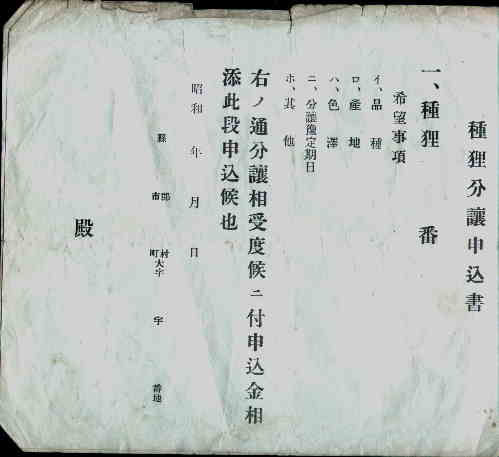 種狸分讓申込書
一、種狸　番
希望事項
イ、品種
ロ、產地
ハ、色澤
ニ、分讓豫定期日
ホ、其他
右ノ通分讓相受度候ニ付申込金相
添此段申込候也
昭和　年　月　日
縣　市郡　町村　大字　字　番地
殿